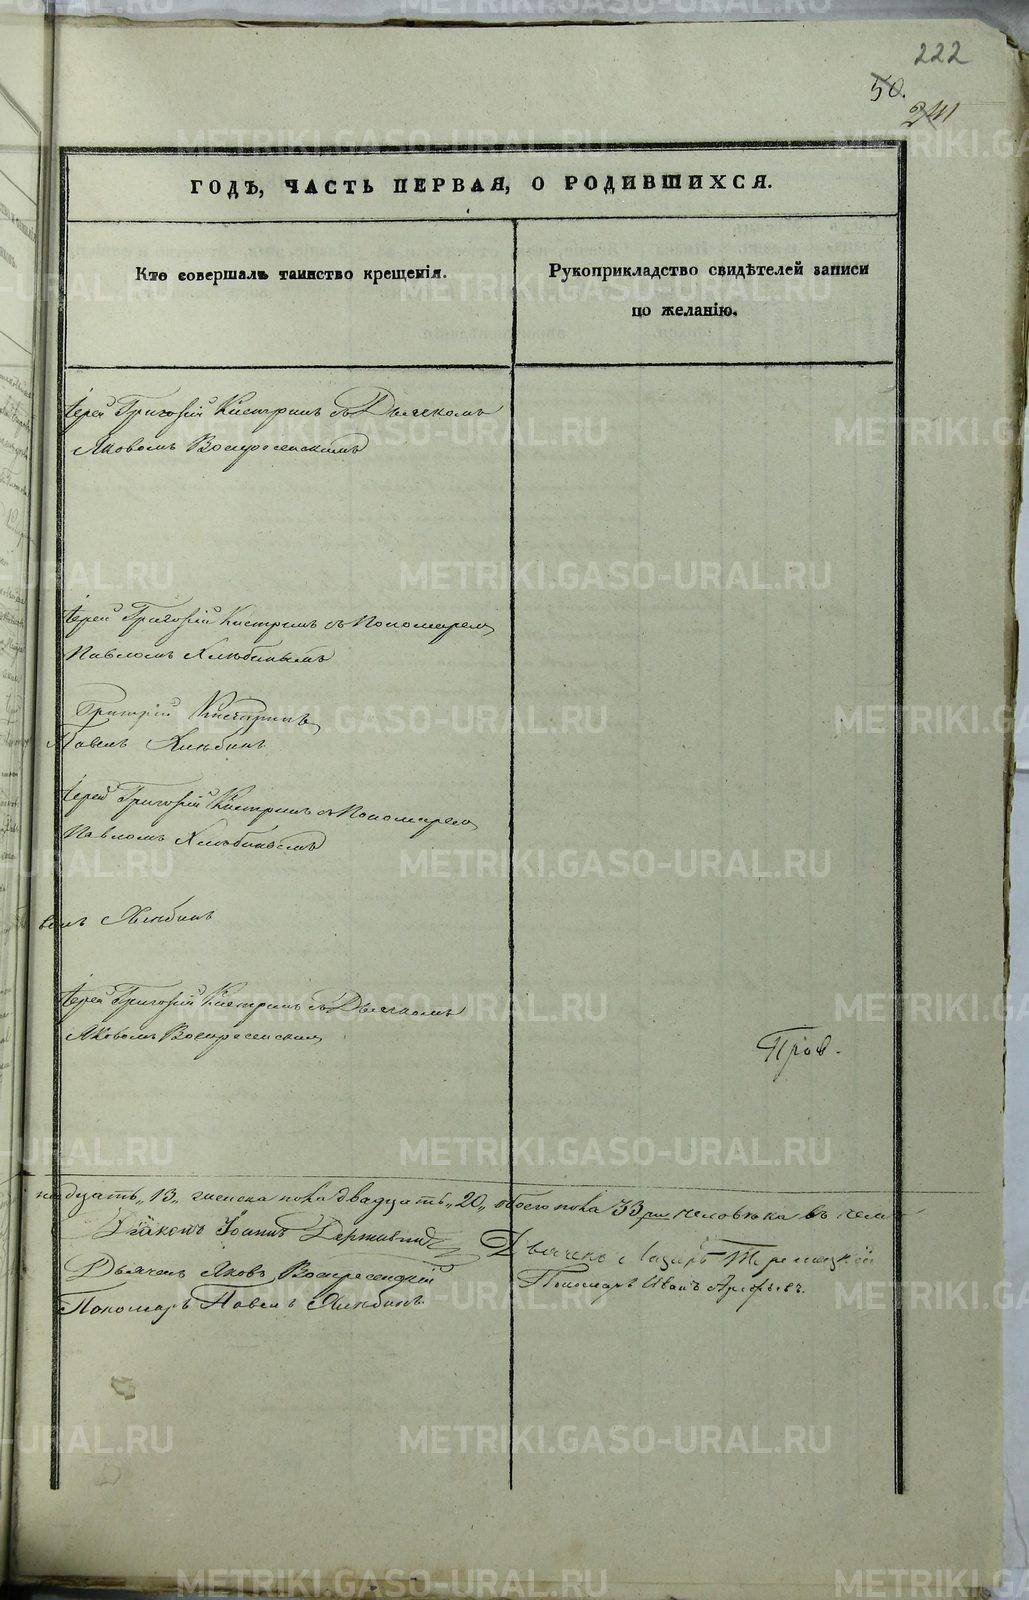 222
50.
241
ГОДЪ, ЧАСТЬ ПЕРВАЯ, О РОДИВШИХСЯ.
Кто совершалъ таинство крещенія.
Рукоприкладство свидѣтелей записи
по желанію.
Іерей Григорій Кистринъ съ Дьячкомъ
Яковомъ Воскресенскимъ
Іерей Григорій Кистринъ съ Пономаремъ
Павломъ Хлѣбинымъ
Григорій Кистринъ
Павелъ Хлѣбинъ
Іерей Григорій Кистринъ съ Пономаремъ
Павломъ Хлѣбинымъ
велъ Хлѣбинъ
Іерей Григорій Кистринъ съ Дьячкомъ
Яковомъ Воскресенским
Пров.
надцать „13„ женска пола двадцать „20„ обоего пола 33 ри человѣка въ чем
Діаконъ Іоаннъ Державинъ
Дьячекъ Лазарь
Дьячекъ Яковъ Воскресенскій
Пономарь Иванъ Арефьевъ.
Пономарь Павелъ Хлѣбинъ.
METRIKI.GASO-URAL.RU